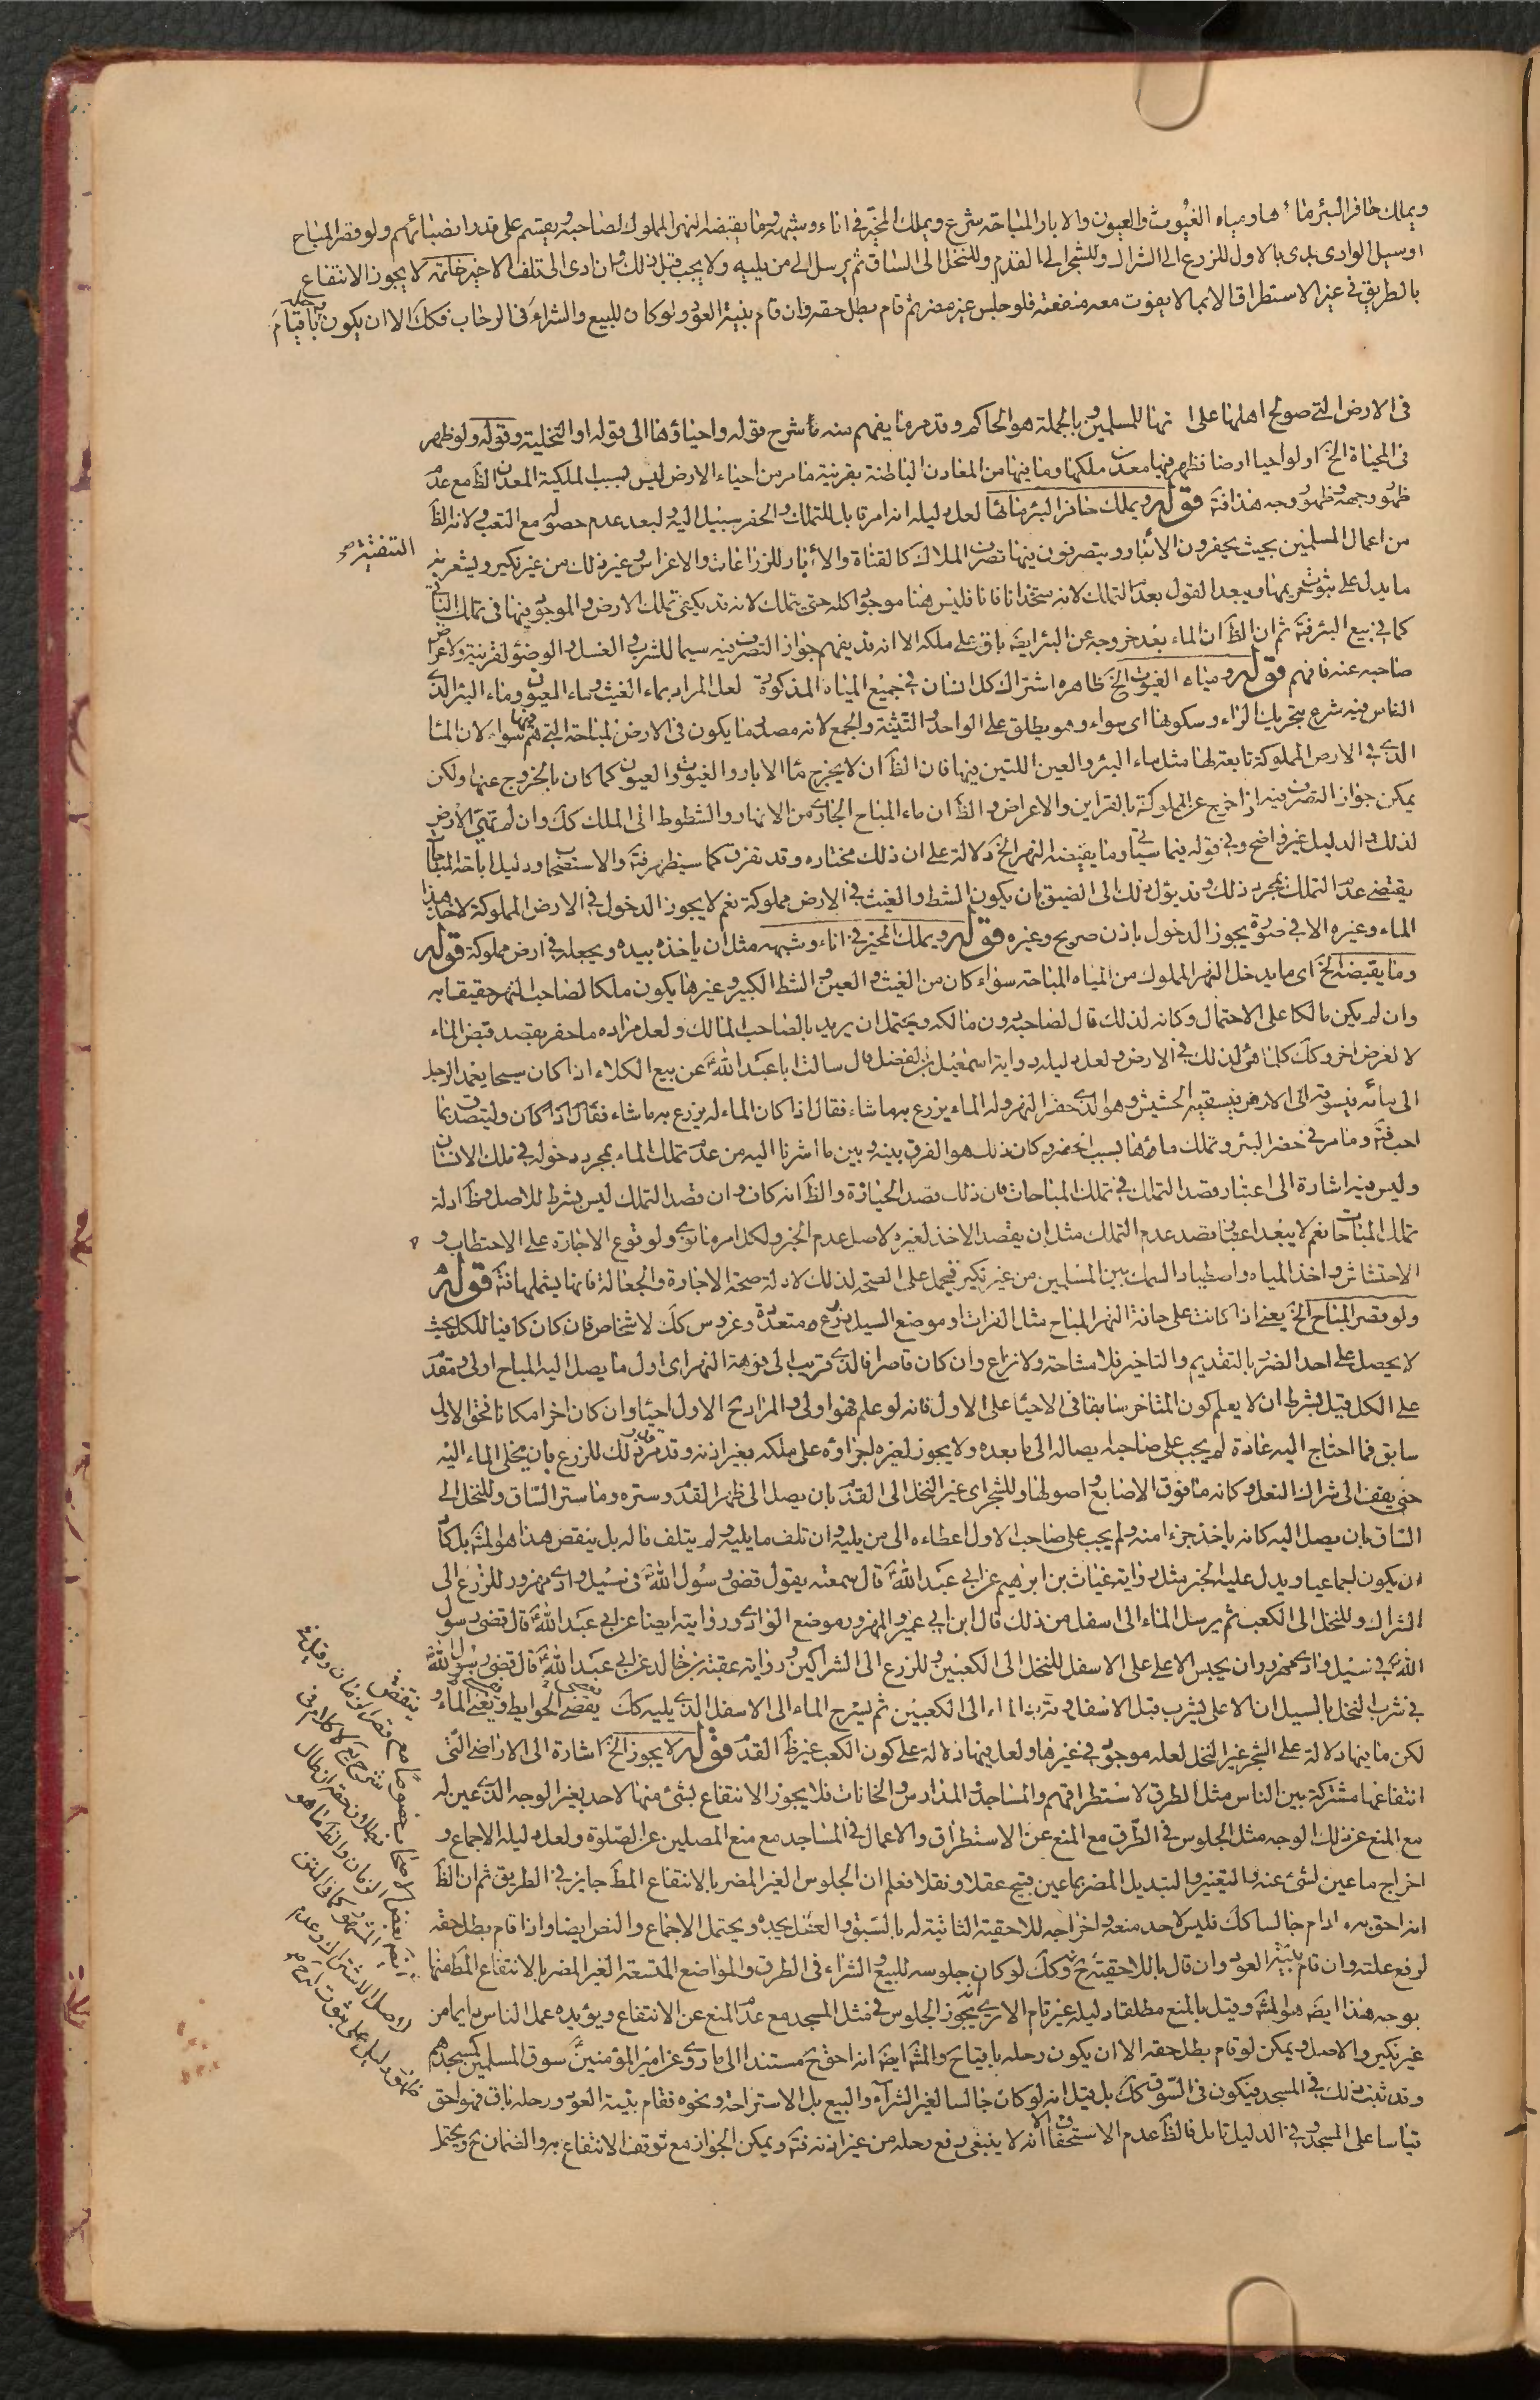 ويملك حافر البئر ماءها ومياه الغيوث والعيون والابار المباحة شرع ويملك المحيز في اناء وشبهه وما يقبضه النهر المملوك لصاحبه ويقسم على قدر انصبائهم ولو قصر المباح
او سيل الوادى بدى بالاول للزرع الى الشراك وللشجر الى القدم وللنخل الى الساق ثم يرسل الى من يليه ولا يجب قبل ذلك وان ادى الى تلف الاخير خاتمة لا يجوز الانتفاع
بالطريق في غير الاستطراق الا بما لا يفوت معه منفعته فلو جلس غير مضر ثم قام بطل حقه وان قام بنية العود ولو كان للبيع والشراء في الرحاب فكك الا ان يكون رحله باقيا
في الارض التي صولح اهلها على انها للمسلمين وبالجملة هو الحاكم وقد مر ما يفهم منه شرح قوله واحياؤها الى قوله او التخلية وقوله ولو ظهر
في المحياة الخ اى لو احيا ارضا فظهر فيها معدن ملكها وما فيها من المعادن الباطنة بقرينة ما مر من احياء الارض ليس لسبب الملكية المعدن الظ مع عدم
ظهور وجهه وظهور وجه هذا فت قوله ويملك حافر البئر مائها لعل دليله انه امر قابل للتملك والحفر سبيل اليه ولبعد عدم حصوله مع التعب ولانه الظ
من اعمال المسلمين بحيث يحفرون الابار ويتصرفون فيها تصرف الملاك كالقناة والابار للزراعات والاغراس وغير ذلك من غير نكير ويشعر به
ما يدل على ثبوت حريمها ويبعد القول بعدم التملك لانه ستحدانا فانا فليس هنا موجودا كله حتى يتملك لانه قد يكفي تملك الارض والموجود فيها في تملك الباقي
كما في بيع البئر فت ثم ان الظ ان الماء بعد خروجه عن البئر ايضا باق على ملكه الا انه قد يفهم جواز التصرف فيه سيما للشرب والغسل والوضوء لقرينة ولاعراض
صاحبه عنه فافهم قوله ومياه الغيوث الخ ظاهره اشتراك كل انسان في جميع المياه المذكورة لعل المراد بماء الغيث وماء العيون وماء البئر الذي
الناس فيه شرع بتحريك الراء وسكونها اى سواء وهو يطلق على الواحد والتثنية والجمع لانه مصدر ما يكون في الارض المباحة التي هم فيها سواء لان الماء
الذي في الارض المملوكة تابعة لها مثل ماء البئر والعين اللتين فيها فان الظ ان لا يخرج ماء الابار والغيوث والعيون كما كان بالخروج عنها ولكن
يمكن جواز التصرف فيه اذا خرج عن المملوكة بالقراين والاعراض والظ ان ماء المباح الجارى من الانهار والشطوط الى الملك كك وان لم
لذلك والدليل غير واضح وفي قوله فيما سياتي وما يقبضه النهر الخ دلالة على ان ذلك مختاره وقد تفرق كما سيظهر فت والاستصحاب ودليل اباحة المباح
يقتضى عدم التملك بمجرد ذلك وقد يؤل ذلك الى الضيق بان يكون الشط والغيث في الارض مملوكة نعم لا يجوز الدخول في الارض المملوكة لاخذ هذا
الماء وغيره الا في صورة يجوز الدخول باذن صريح وغيره قوله ويملك المحيز في اناء وشبهه مثل ان ياخذه بيده ويجعله في ارض مملوكة قوله
وما يقبضه الخ اى ما يدخل النهر المملوك من المياه المباحة سواء كان من الغيث والعين والشط الكبير وغيرها يكون ملكا لصاحب النهر حقيقا به
وان لم يكن مالكا على الاحتمال وكانه لذلك قال لصاحبه دون مالكه ويحتمل ان يريد بالصاحب المالك ولعل مراده ما حفر بقصد قبض الماء
لا لغرض اخر وكك كلما هئ لذلك في الارض ولعل دليله رواية اسمعيل بن الفضل قال سالت ابا عبد الله عن بيع الكلاء اذا كان سيحا يعمد الرجل
الى مائه فيسوقه الى الارض فيسقيه الحشيش وهو الذي حفر النهر وله الماء يزرع به ما شاء فقال اذا كان الماء له يزرع به ما شاء فقال اذا كان وليتصدق بما
احب فت وما مر في حفر البئر وتملك ماؤها بسبب الحفر وكان ذلك هو الفرق بينه وبين ما اشرنا اليه من عدم تملك الماء بمجرد دخوله في ملك الانسان
وليس فيه اشارة الى اعتبار قصد التملك في تملك المباحات فان ذلك قصد الحيازة والظ انه كاف وان قصد التملك ليس بشرط للاصل وظ ادلة
تملك المباحات نعم لا يبعد اعتبار قصد عدم التملك مثل ان يقصد الاخذ لغيره لاصل عدم الخبر ولكل امرء ما نوى ولو قوع الاجارة على الاحتطاب و
الاحتشاش واخذ المياه واصطياد السمك بين المسلمين من غير نكير فيحمل على الصحة لذلك لادلة صحة الاجارة والجعالة فانها يشملها فت قوله
ولو قصر المباح الخ يعني اذا كانت على حافة النهر المباح مثل الفرات او موضع السيل زرع متعددة وغروس كك لاشخاص فان كان كافيا للكل بحيث
لا يحصل على احد الضرر بالتقديم والتاخير فلا مشاحة ولا نزاع وان كان قاصرا فالذي قريب الى فوهة النهر اى اول ما يصل اليه المباح اولى ومقدم
على الكل قيل بشرط ان لا يعلم كون المتاخر سابقا في الاحياء على الاول فانه لو علم فهو اولى والمراد ح الاول احياء وان كان اخرا مكانا فحق الاول
سابق فما احتاج اليه عادة لم يجب على صاحبه ايصاله الى ما بعده ولا يجوز لغيره اجراؤه على ملكه بغير اذنه وقد قدر ذلك للزرع بان يخلى الماء اليه
حتى يقف الى شراك النعل وكانه ما فوق الاصابع واصولها وللشجر اى غير النخل الى القدم بان يصل الى ظهر القدم وستره وما ستر الساق وللنخل الى
الساق بان يصل اليه كانه ياخذ جزءا منه ولم يجب على صاحب الاول اعطاءه الى من يليه وان تلف ما يليه ولم يتلف ماله بل ينقص هذا هو المشهور بل كاد
ان يكون اجماعيا ويدل عليه الخبر مثل رواية غياث بن ابرهيم عن ابي عبد الله قال سمعته يقول قضى رسول الله في سيل وادى مهزور للزرع الى
الشراك وللنخل الى الكعب ثم يرسل الماء الى اسفل من ذلك قال ابن ابي عمير والمهزور موضع الوادى ورواية ايضا عن ابي عبد الله قال قضى رسول
الله في سيل وادى مهزور ان يحبس الاعلى على الاسفل للنخل الى الكعبين وللزرع الى الشراكين ورواية عقبة بن خالد عن ابي عبد الله قال قضى رسول الله
في شرب النخل بالسيل ان الاعلى يشرب قبل الاسفل ويترك الماء الى الكعبين ثم يسرح الماء الى الاسفل الذي يليه كك يقضى الحوايط ويفنى الماء و
لكن ما فيها دلالة على الشجر غير النخل لعله موجود في غيرها ولعل فيها دلالة على كون الكعب غير ظ القدم قوله لا يجوز الخ اشارة الى الاراضي التي
انتفاعها مشتركة بين الناس مثل الطرق لاستطراقهم والمساجد والمدارس والخانات فلا يجوز الانتفاع بشئ منها لاحد بغير الوجه الذي عين له
مع المنع عن ذلك الوجه مثل الجلوس في الطرق مع المنع عن الاستطراق والاعمال في المساجد مع منع المصلين عن الصلوة ولعل دليله الاجماع و
اخراج ما عين لشئ عنه والتغيير والتبديل المضر بما عين قبيح عقلا ونقلا فعلم ان الجلوس الغير المضر بالانتفاع المط جايز في الطريق ثم ان الظ
انه احق به ما دام جالسا كك فليس لاحد منعه واخراجه للاحقية الثابتة له بالسبق والعقل يجده ويحتمل الاجماع والنص ايضا واذا قام بطل حقه
لرفع علته وان قام بنية العود وان قال بالاحقية ح وكك لو كان جلوسه للبيع والشراء في الطرق والمواضع المتسعة الغير المضر بالانتفاع المط منها
بوجه هذا ايض هو المشهور وقيل بالمنع مطلقا ودليله غير تام الا ترى انه يجوز الجلوس في مثل المسجد مع عدم المنع عن الانتفاع ويؤيده عمل الناس دايما من
غير نكير والاصل ويمكن لو قام بطل حقه الا ان يكون رحله باقيا ح والمشهور ايض انه احق ح مستندا الى ما روى عن امير المؤمنين سوق المسلمين كمسجدهم
وقد ثبت ذلك في المسجد فيكون في السوق كك بل قيل انه لو كان جالسا لغير الشراء والبيع بل الاستراحة ونحوه فقام بنية العود ورحله باق فهو احق
قياسا على المسجد وفي الدليل تامل فالظ عدم الاستحقاق الا انه لا ينبغي رفع رحله من غير اذنه فت ويمكن الجواز مع توقف الانتفاع به والضمان ح ويحتمل